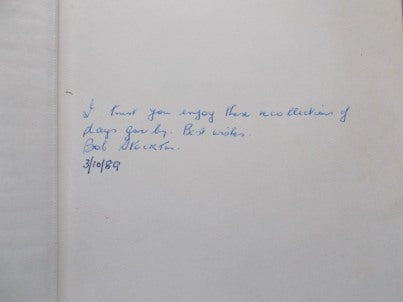 I trust you enjoy these recollections of
days gone by. Best wishes.
Bob Stockton.
3/10/89